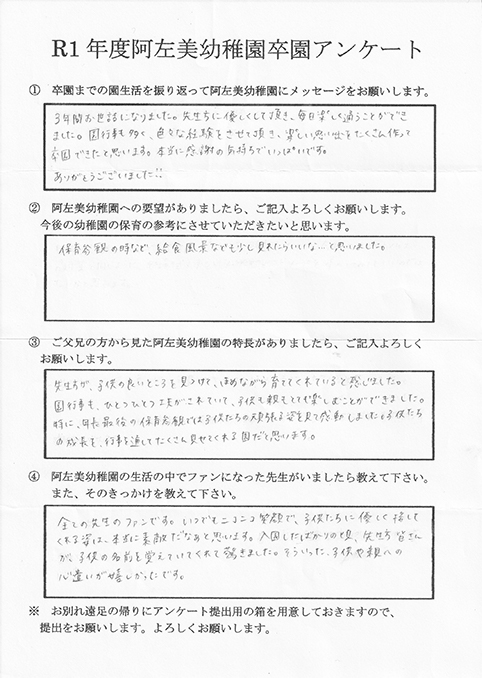 R1年度阿左美幼稚園卒園アンケート
① 卒園までの園生活を振り返って阿左美幼稚園にメッセージをお願いします。
3年間お世話になりました。先生方に優しくして頂き、毎日楽しく通うことができ
ました。園行事も多く、色々な経験をさせて頂き、楽しい思い出をたくさん作って
卒園できたと思います。本当に感謝の気持ちでいっぱいです。
ありがとうございました!!
② 阿左美幼稚園への要望がありましたら、ご記入よろしくお願いします。
今後の幼稚園の保育の参考にさせていただきたいと思います。
保育参観の時など、給食風景なども少し見れたらいいな…と思いました。
③ ご父兄の方から見た阿左美幼稚園の特長がありましたら、ご記入よろしく
お願いします。
先生方が、子供の良いところを見つけて、ほめながら育ててくれていると感じました。
園行事も、ひとつひとつ工夫がされていて、子供も親もとても楽しむことができました。
特に、年長最後の保育参観では子供たちの頑張る姿を見て感動しました。子供たち
の成長を、行事を通してたくさん見せてくれる園だと思います。
④ 阿左美幼稚園の生活の中でファンになった先生がいましたら教えて下さい。
また、そのきっかけを教えて下さい。
全ての先生のファンです。いつでもニコニコ笑顔で、子供たちに優しく接して
くれる姿は、本当に素敵だなぁと思います。入園したばかりの頃、先生方皆さん
が、子供の名前を覚えていてくれて驚きました。そういった、子供や親への
心遣いが嬉しかったです。
※ お別れ遠足の帰りにアンケート提出用の箱を用意しておきますので、
提出をお願いします。よろしくお願いします。